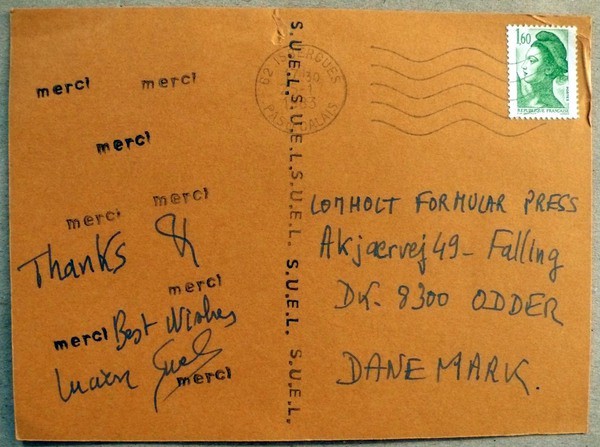 merci merci
merci
merci merci
Thanks &
merci
merci Best Wishes
merci
S.U.E.L. S.U.E.L. S.U.E.L. S.U.E.L. S.U.E.L. S.U.E.L.
62 ISBERGUES
1983
PAS DE CALAIS
1,60
REPUBLIQUE FRANÇAISE
LOMHOLT FORMULAR PRESS
Akjærvej 49 - Falling
DK. 8300 ODDER
DANEMARK.